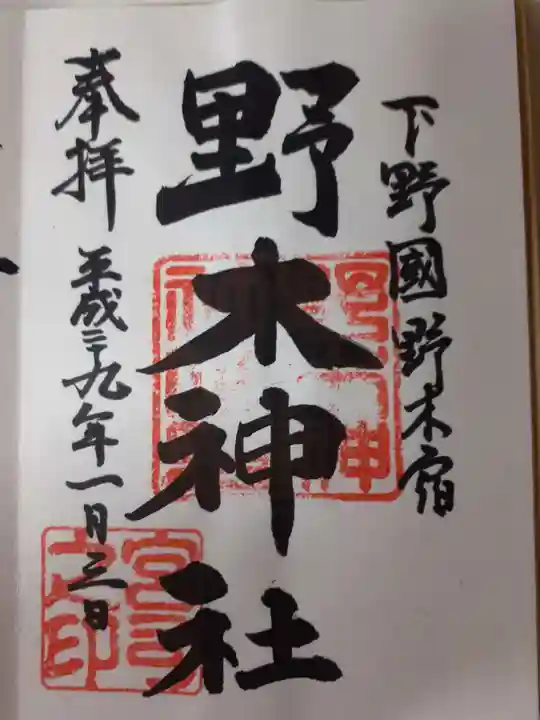 下野國野木宿
野木神社
奉拝 平成二十九年一月三日
宮司之印